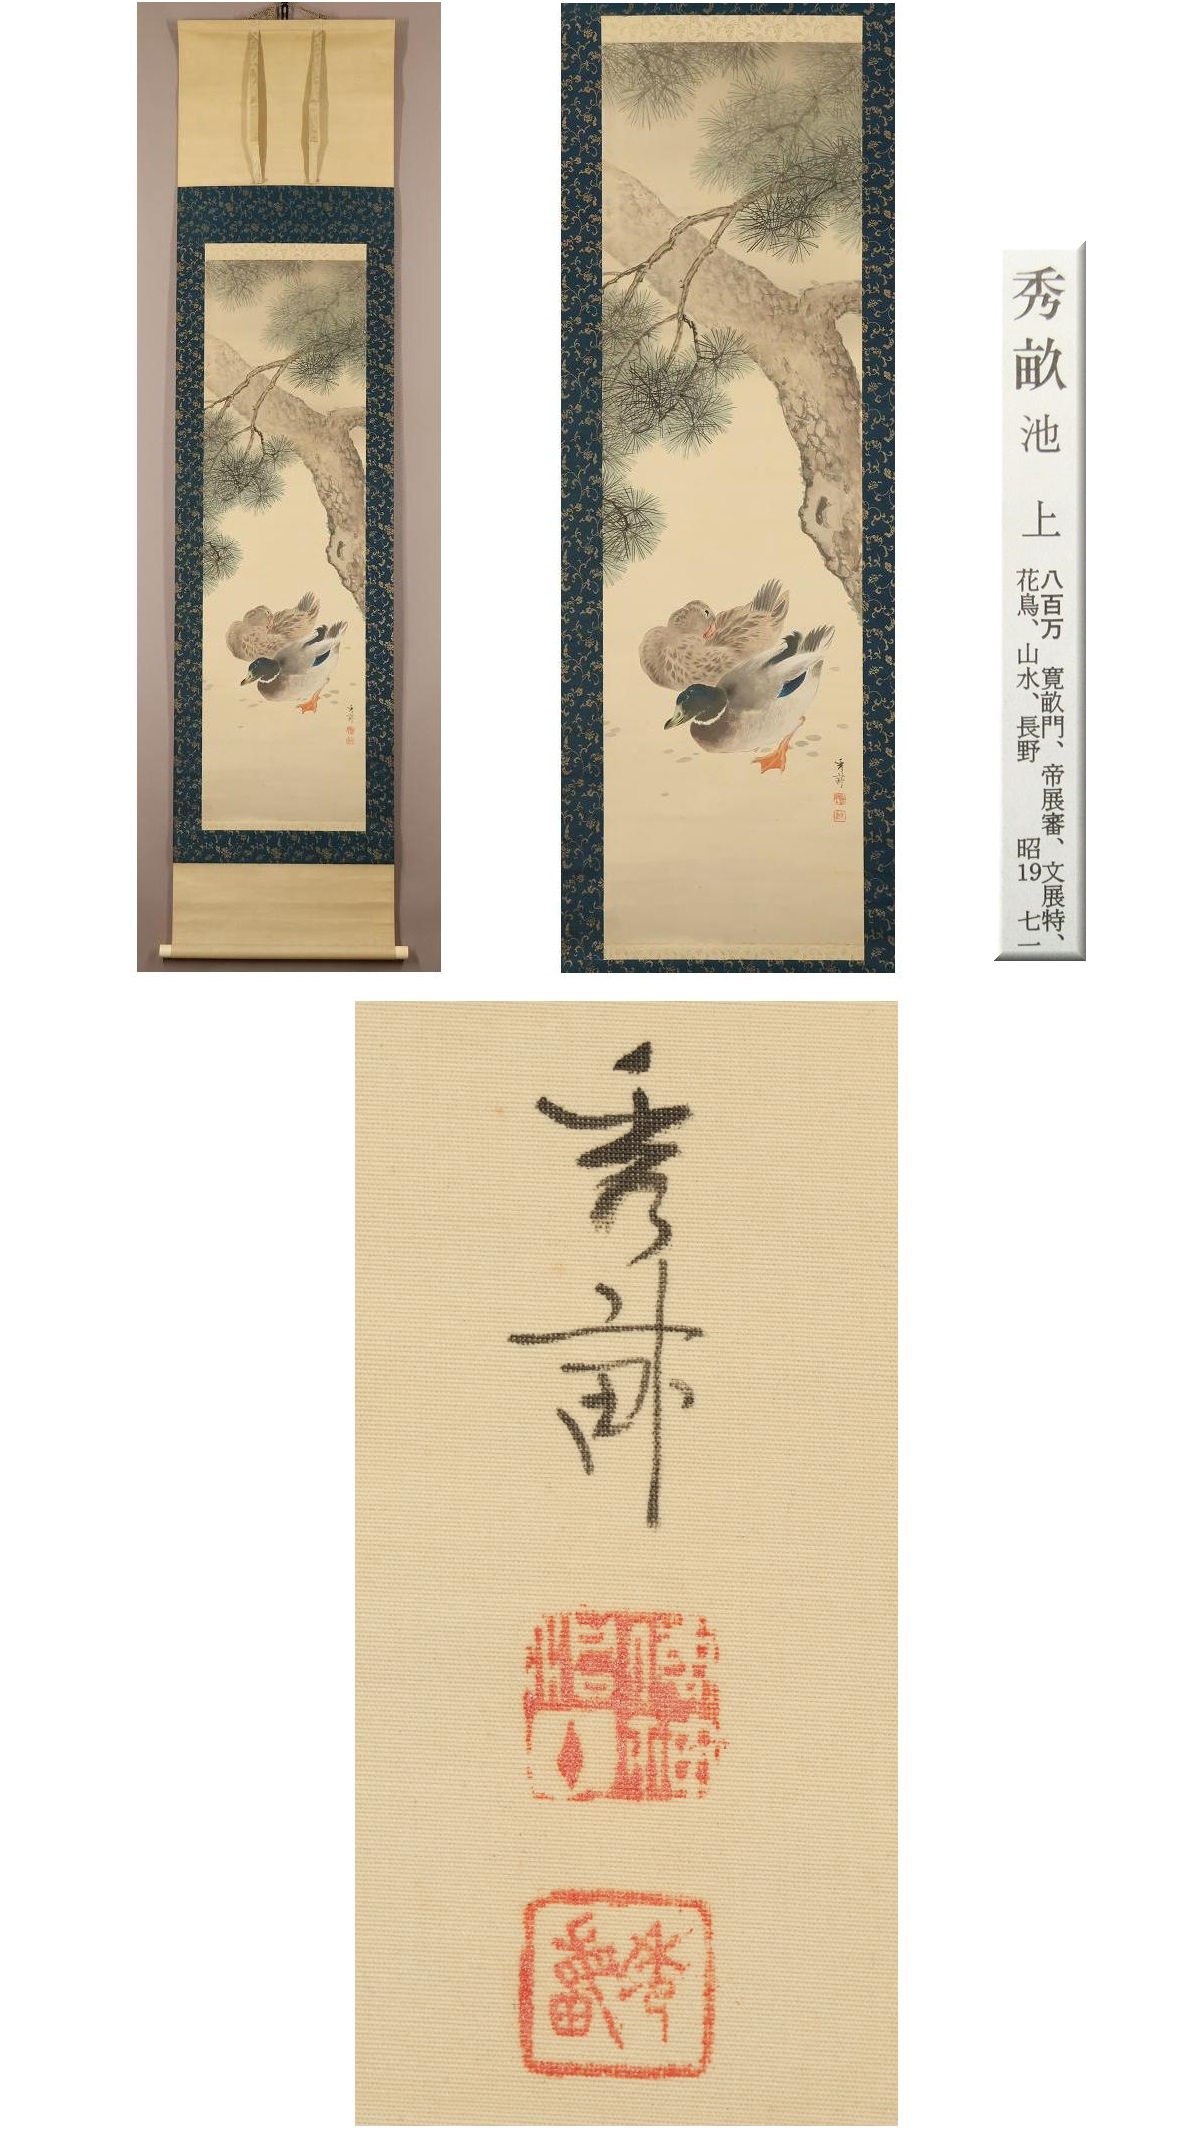 秀畝
池上
八百万 寛畝門、帝展審、文展特、
花鳥、山水、長野 昭19 七一
秀畝
秀畝